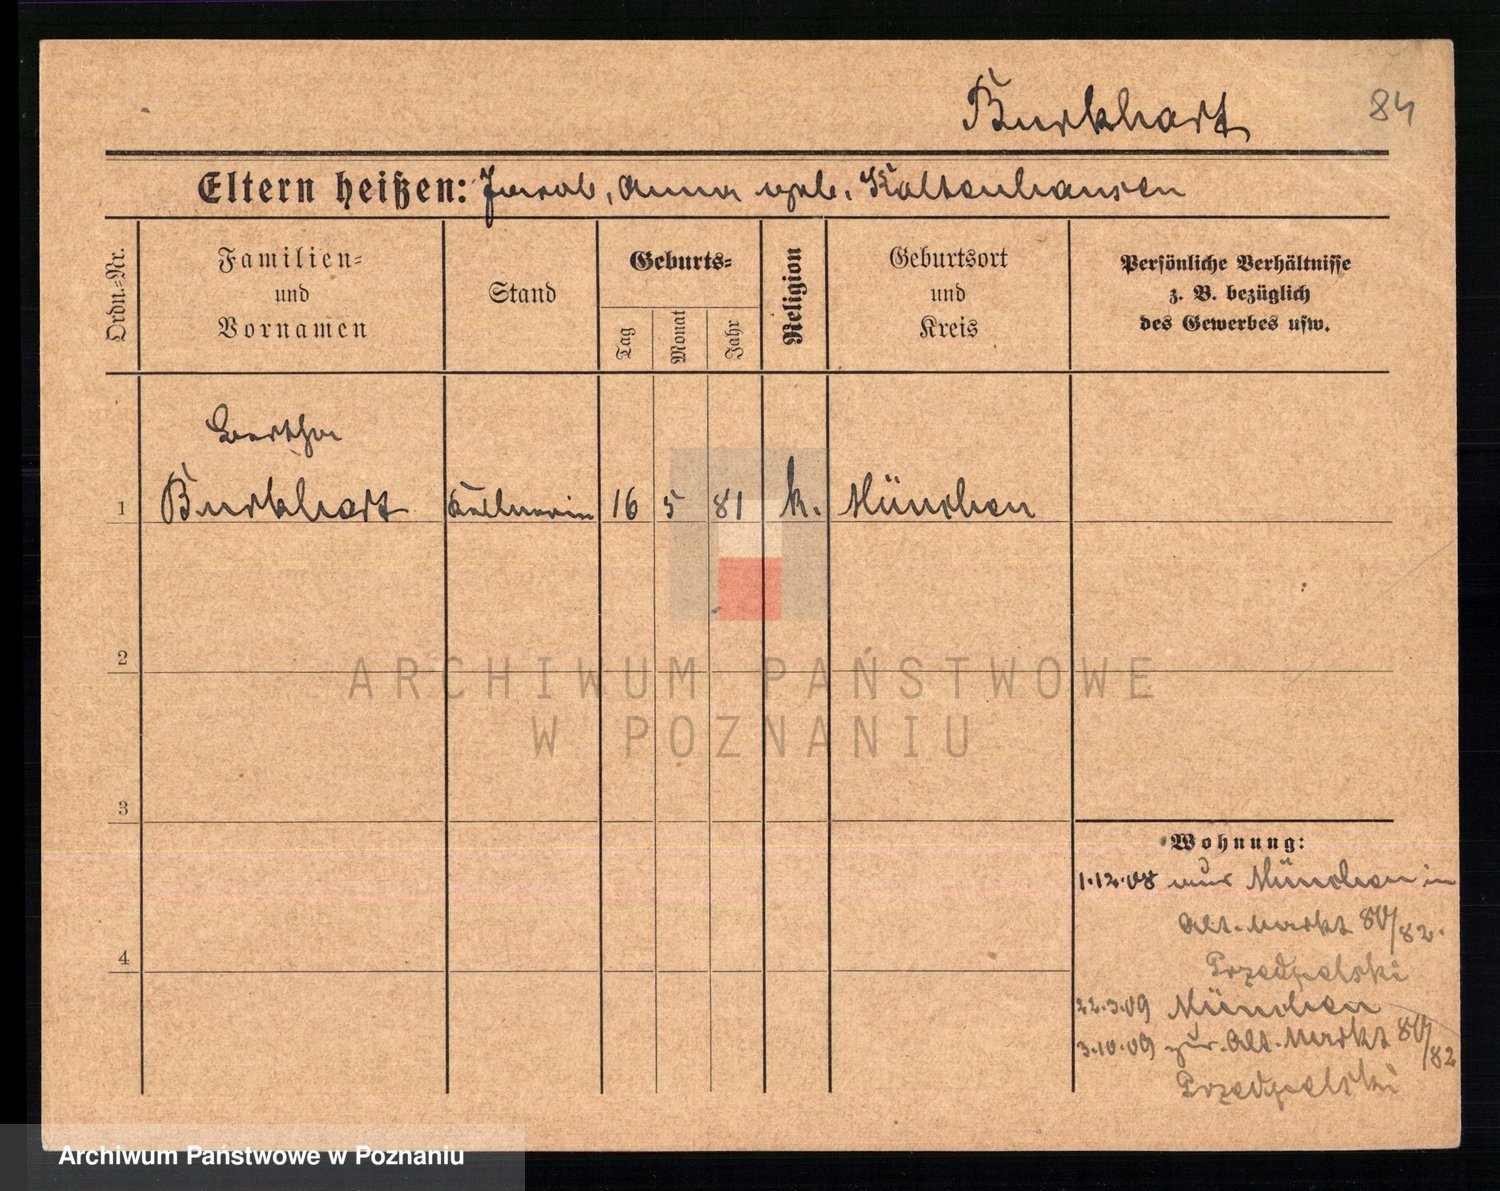 Burkhart
84
Eltern heißen: Jacob, Anna geb. Kaltenhausen
Ordn.-Nr.
Familien-
und
Vornamen
Stand
Geburts-
Tag
Monat
Jahr
Religion
Geburtsort
und
Kreis
Persönliche Verhältnisse
z. B. bezüglich
des Gewerbes usw.
Bertha
1 Burkhart Kellnerin 16 5 81 k. München
2
3
4
ARCHIWUM PAŃSTWOWE
W POZNANIU
Wohnung:
1.12.08 aus München in
Alt. Markt 80/82.
Przedpelski
22.3.09 München
3.10.09 zur. Alt. Markt 80/82
Przedpelski
Archiwum Państwowe w Poznaniu